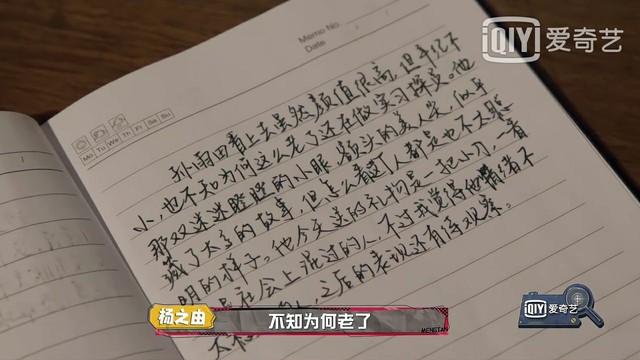 Memo No.
Date
iQIYI 爱奇艺
Mo Tu We Th Fr Sa Su
孙雨田看上去虽然颜值很高，但年纪不
小，也不知为何这么老了还在做实习探员。他
那双迷迷瞪瞪的小眼 额头的美人尖，似乎
藏了太多的故事，但怎么看这个人都是也不太聪
明的样子。他今天送的礼物是一把小刀，一看
在社会上混过的人，不过我觉得他情绪不
之后的表现还有待观察。
杨之由
不知为何老了
MENGTAN
iQIYI 爱奇艺